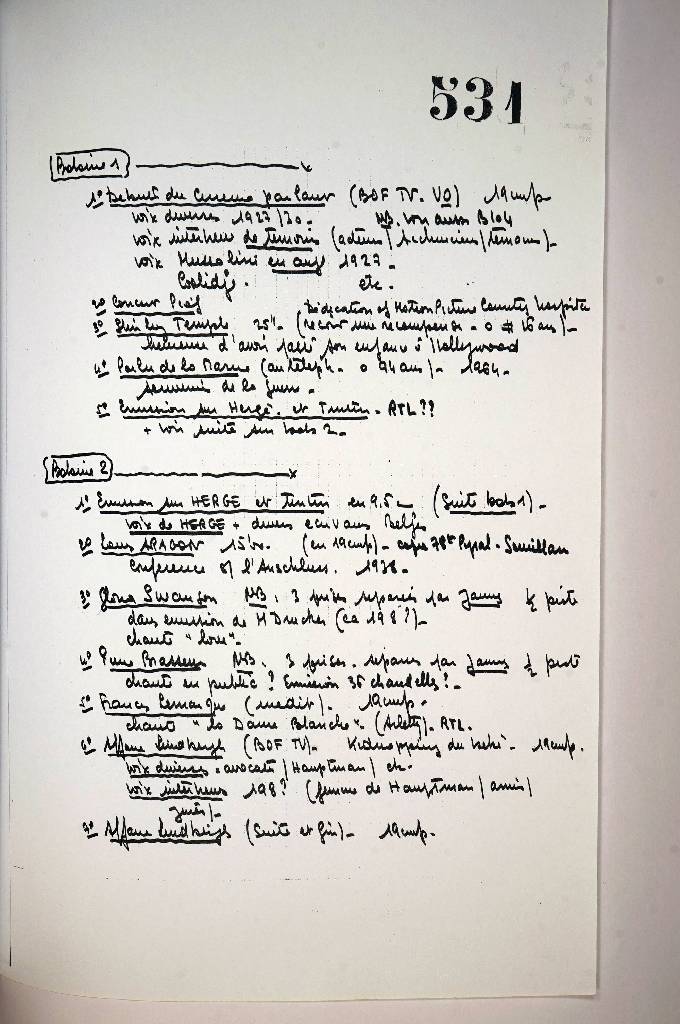 531
Bobine 1
1° Debuts du Cinema parlant (BOF TV. VO) 19 cm/s
voix diverses 1927/30. NB. Voir aussi B104
voix interieur de temoins (acteurs/techniciens/temoins)_
voix Mussolini en angl 1927_
Coolidge. etc_
2° Concour Piaf
3° Shirley Temple 25"_ (Dedication of Motion Picture Country hospital
(recoit une recompense_ 0 # 16 ans)_
heureuse d'avoir passé son enfance à Hollywood
4° Poilu de la Marne (au téléph. 0 94 ans)_ 1964_
souvenirs de la guerre.
5° Emission sur Hergé et Tintin_ RTL??
+ voir suite sur bob 2_
Bobine 2
1° Emission sur HERGE et Tintin en 9.5_ (Suite bob 1)_
voix de HERGE + divers ecrivains belges
2° Louis ARAGON 15'_ (en 19 cm/s)_ copie 78t Pyral.
Conference of l'Anschluss. 1938_
3° Gloria Swanson NB. 3 prises separées par Jaunes ½ piste
dans emission de M Drucker (ca 198?)_
chante "love"_
4° Pierre Brasseur NB. 3 prises. separees par Jaunes ½ piste
chante en public? Emission 36 chandelles?_
5° Francis Lemarque (inedit)_ 19 cm/s_
chante "la Dame Blanche"_ (Arletty)_ RTL.
6° Affaire Lindbergh (BOF TV)_ Kidnapping du bebé_ 19 cm/s.
voix diverses. avocats/Hauptman/etc_
voix interieurs 198? (femme de Hauptman/amis/
jurés)_
7° Affaire Lindbergh (Suite et fin)_ 19 cm/s_